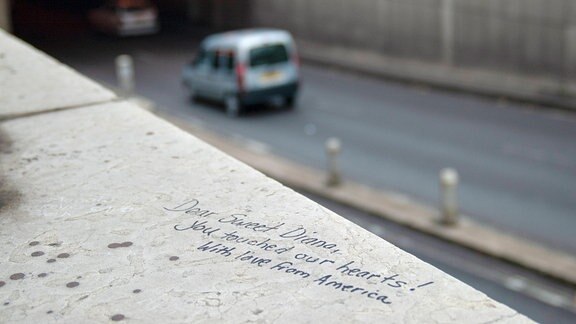 Dear Sweet Diana,
You touched our hearts!
With love from America